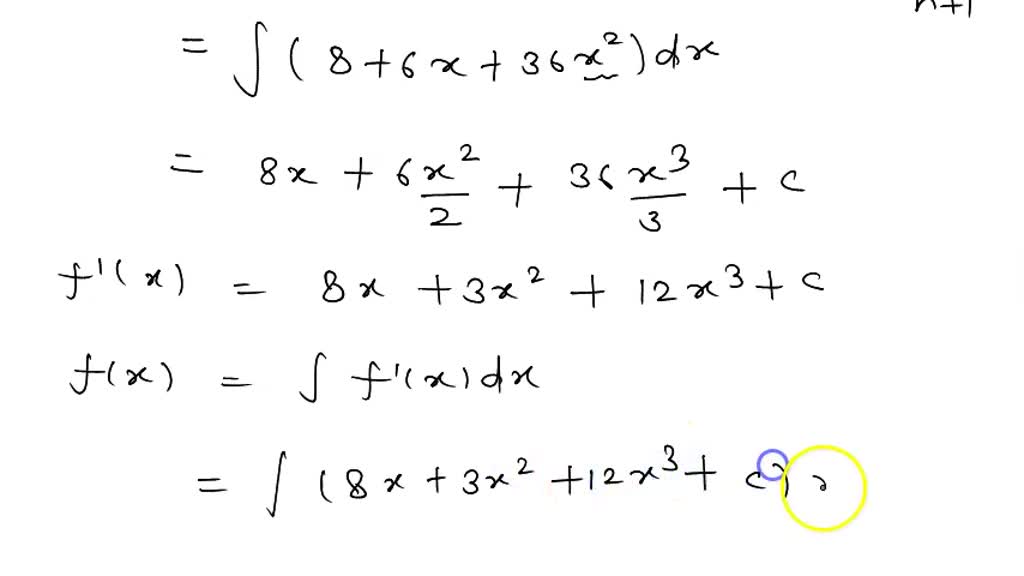 n+1
= ∫ ( 8 + 6x + 36x² ) dx
= 8x + 6x²/2 + 36x³/3 + c
f'(x) = 8x + 3x² + 12x³ + c
f(x) = ∫ f'(x) dx
= ∫ ( 8x + 3x² + 12x³ + c )